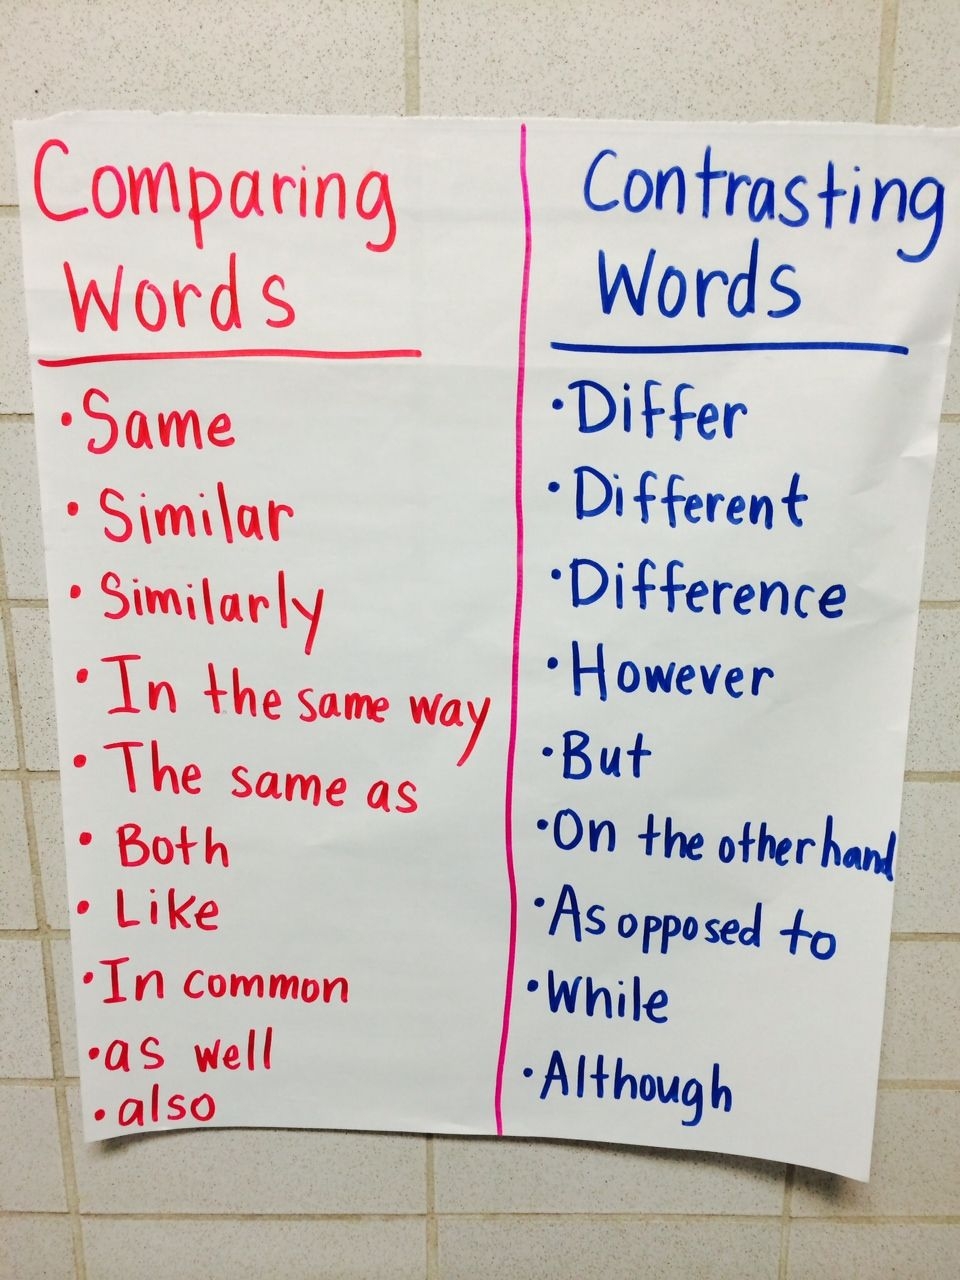 Comparing
Words
• Same
• Similar
• Similarly
• In the same way
• The same as
• Both
• Like
• In common
• as well
• also
Contrasting
Words
• Differ
• Different
• Difference
• However
• But
• On the other hand
• As opposed to
• While
• Although